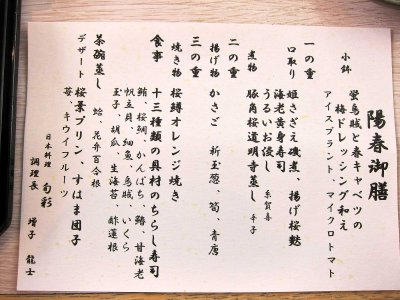 陽春御膳
小鉢 蛍烏賊と春キャベツの
梅ドレッシング和え
アイスプラント、マイクロトマト
一の重
口取り 姫さざえ磯煮、揚げ桜麩
海老黄身寿司
うるいお浸し 糸賀喜
煮物 豚角桜道明寺蒸し 辛子
二の重
揚げ物 かさご 新玉葱、筍、青唐
三の重
焼き物 桜鱒オレンジ焼き
食事 十三種類の具材のちらし寿司
鮪、桜鯛、かんぱち、鰆、甘海老
帆立貝、細魚、烏賊、いくら
玉子、胡瓜、生海苔、酢蓮根
茶碗蒸し 蛤、花弁百合根
デザート 桜葉プリン、すはま団子
苺、キウイフルーツ
日本料理 旬彩
調理長 増子 龍士